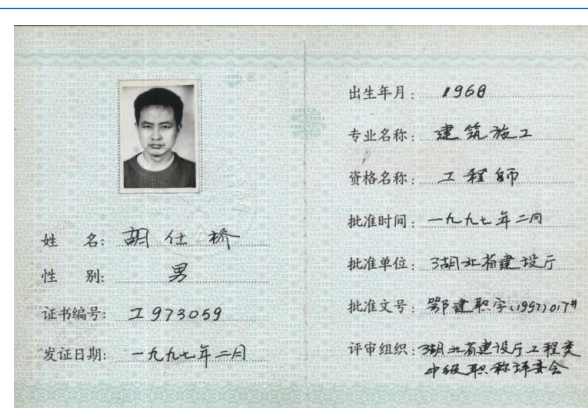 姓 名: 胡仕桥
性 别: 男
证书编号: 工973059
发证日期: 一九九七年二月
出生年月: 1968
专业名称: 建筑施工
资格名称: 工程师
批准时间: 一九九七年二月
批准单位: 湖北省建设厅
批准文号: 鄂建职字(1997)017#
评审组织: 湖北省建设厅工程类
中级职称评委会